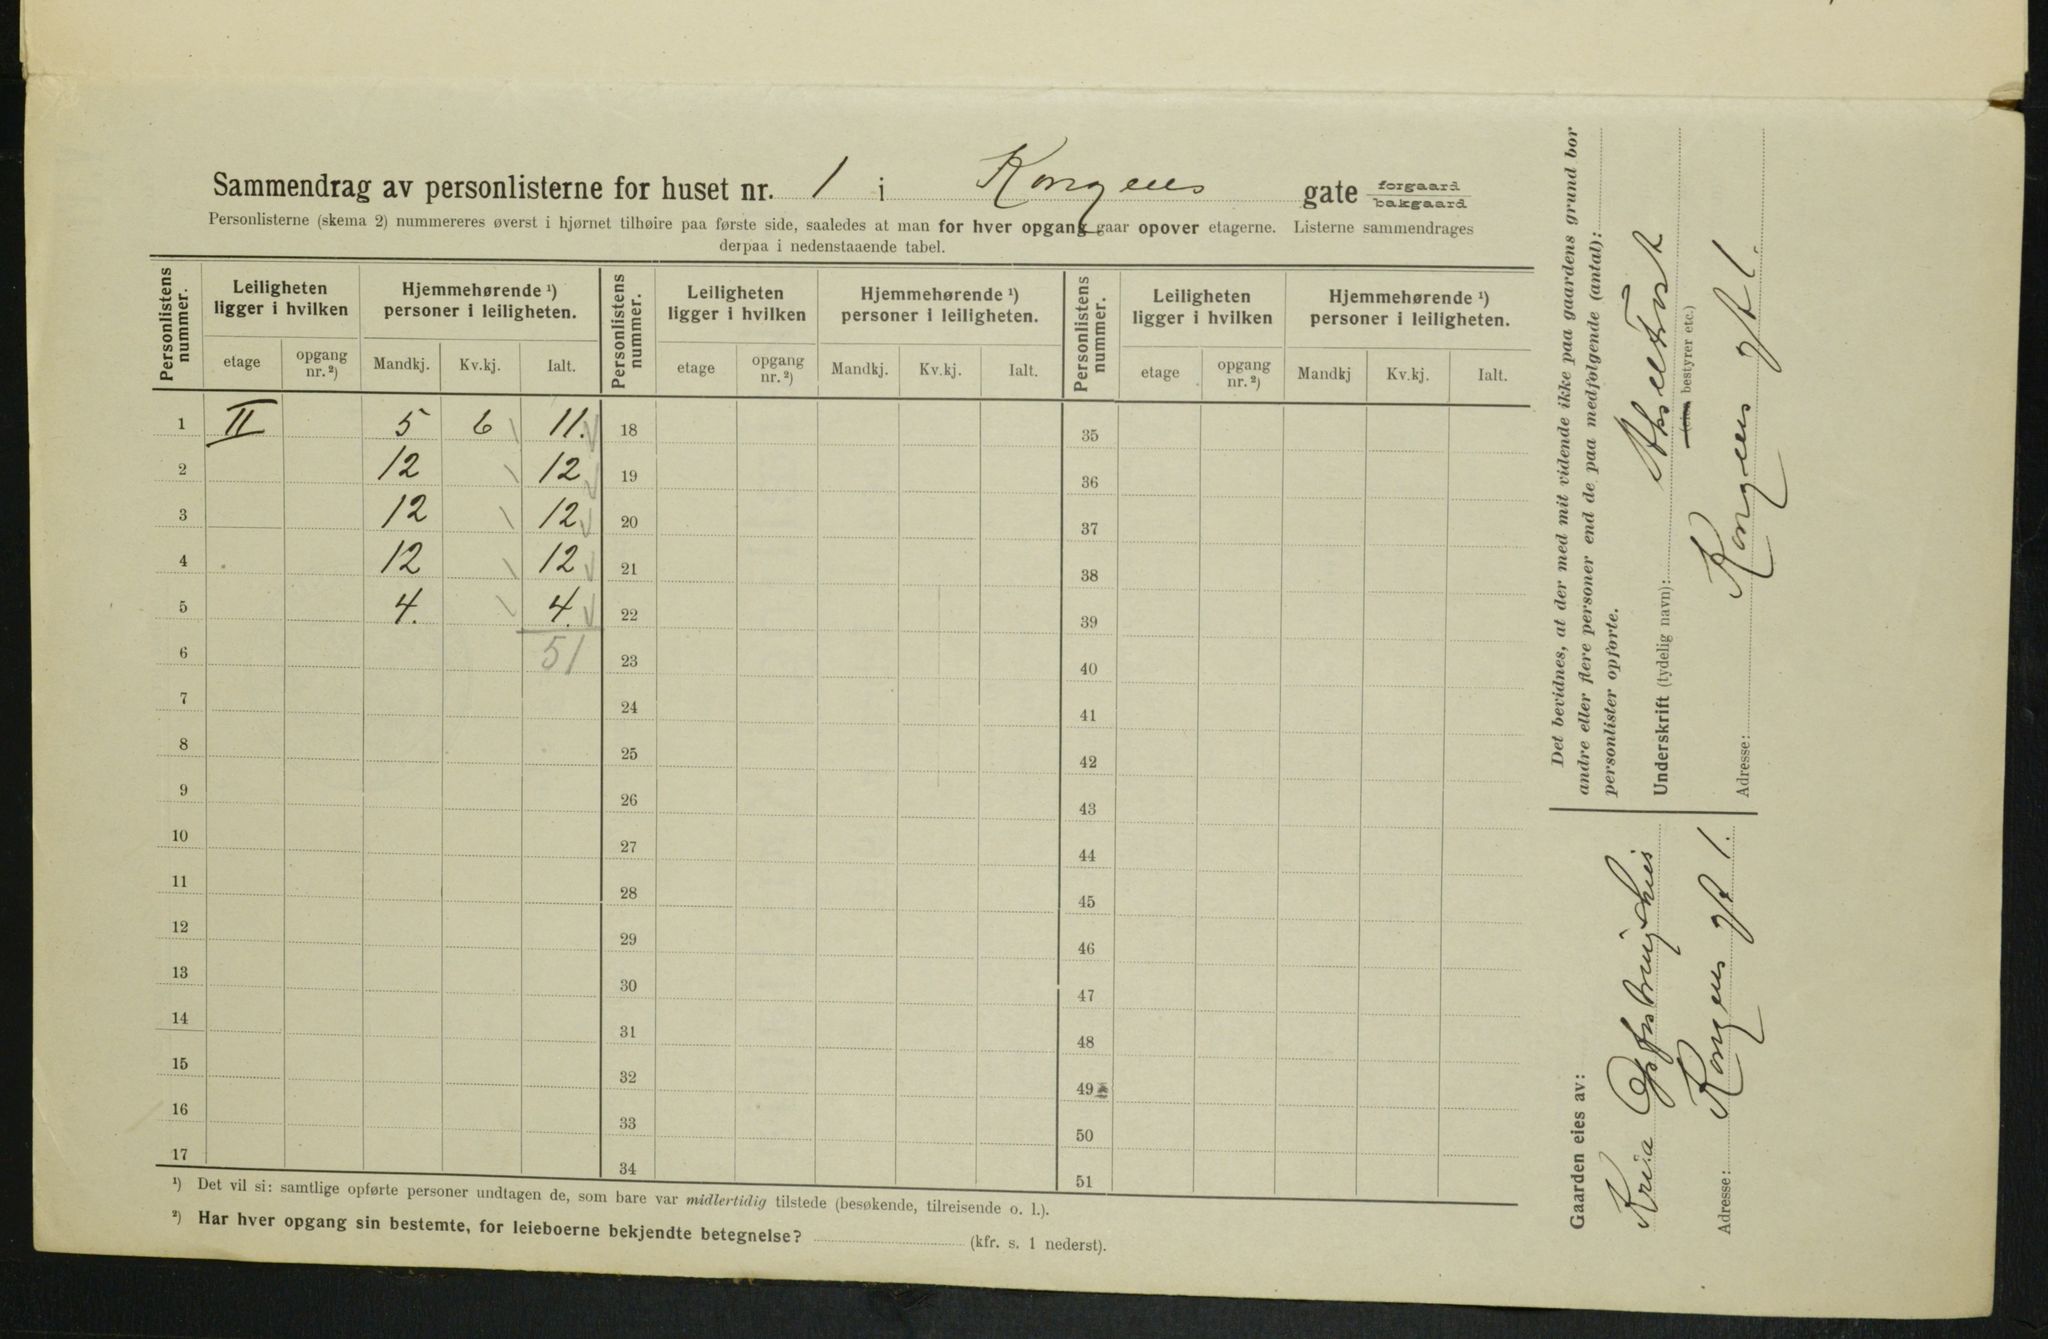 Sammendrag av personlisterne for huset nr. 1 i Kongens gate forgaard bakgaard
Personlisterne (skema 2) nummereres øverst i hjørnet tilhøire paa første side, saaledes at man for hver opgang gaar opover etagerne. Listerne sammendrages
derpaa i nedenstaaende tabel.
Personlistens nummer. Leiligheten ligger i hvilken Hjemmehørende ¹) personer i leiligheten. Personlistens nummer. Leiligheten ligger i hvilken Hjemmehørende ¹) personer i leiligheten. Personlistens nummer. Leiligheten ligger i hvilken Hjemmehørende ¹) personer i leiligheten.
etage opgang nr. ²) Mandkj. Kv.kj. Ialt. etage opgang nr. ²) Mandkj. Kv.kj. Ialt. etage opgang nr. ²) Mandkj Kv.kj. Ialt.
1 II 5 6 11. 18 35
2 12 12 19 36
3 12 12 20 37
4 12 12 21 38
5 4. 4. 22 39
6 51 23 40
7 24 41
8 25 42
9 26 43
10 27 44
11 28 45
12 29 46
13 30 47
14 31 48
15 32 49
16 33 50
17 34 51
¹) Det vil si: samtlige opførte personer undtagen de, som bare var midlertidig tilstede (besøkende, tilreisende o. l.).
²) Har hver opgang sin bestemte, for leieboerne bekjendte betegnelse? (kfr. s. 1 nederst).
Det bevidnes, at der med mit vidende ikke paa gaardens grund bor
andre eller flere personer end de paa medfølgende (antal):
personlister opførte.
Underskrift (tydelig navn):
(eier, bestyrer etc.)
Adresse: Kongens gt 1.
Gaarden eies av:
Kria Opfostringshus
Adresse: Kongens gt 1.